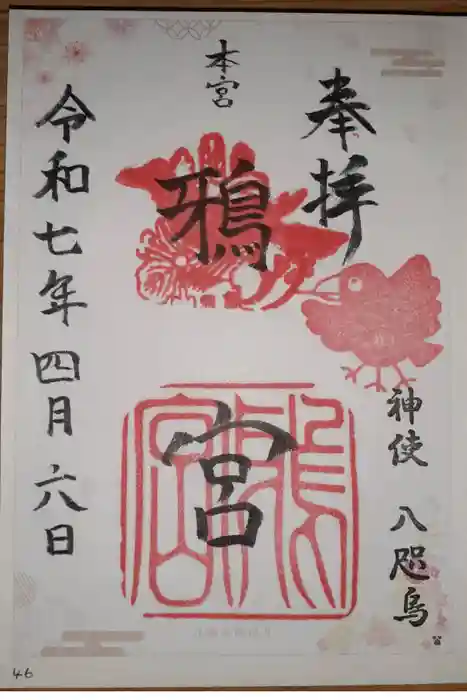 奉拝
本宮
鴉宮
神使 八咫烏
令和七年四月六日
46